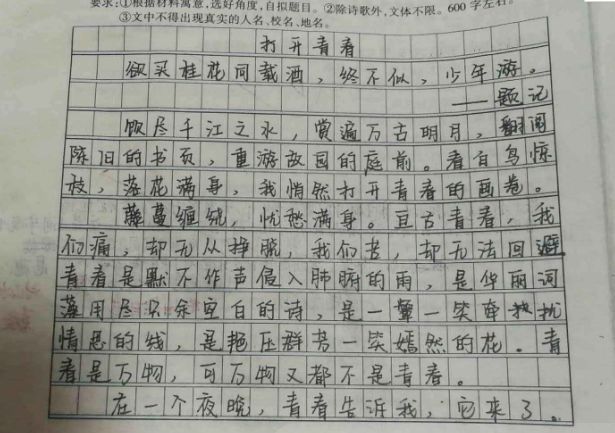 要求:①根据材料寓意,选好角度,自拟题目。②除诗歌外,文体不限。600字左右。
③文中不得出现真实的人名、校名、地名。
打开青春
欲买桂花同载酒,终不似,少年游。
——题记
饮尽千江之水,赏遍万古明月,翻阅
陈旧的书页,重游故园的庭前。看白鸟惊
枝,落花满身,我悄然打开青春的画卷。
藤蔓缠绕,忧愁满身。亘古青春,我
们痛,却无从挣脱,我们苦,却无法回避
青春是默不作声侵入肺腑的雨,是华丽词
藻用尽只余空白的诗,是一颦一笑牵扰
情思的线,是艳压群芳一笑嫣然的花。青
春是万物,可万物又都不是青春。
在一个夜晚,青春告诉我,它来了。